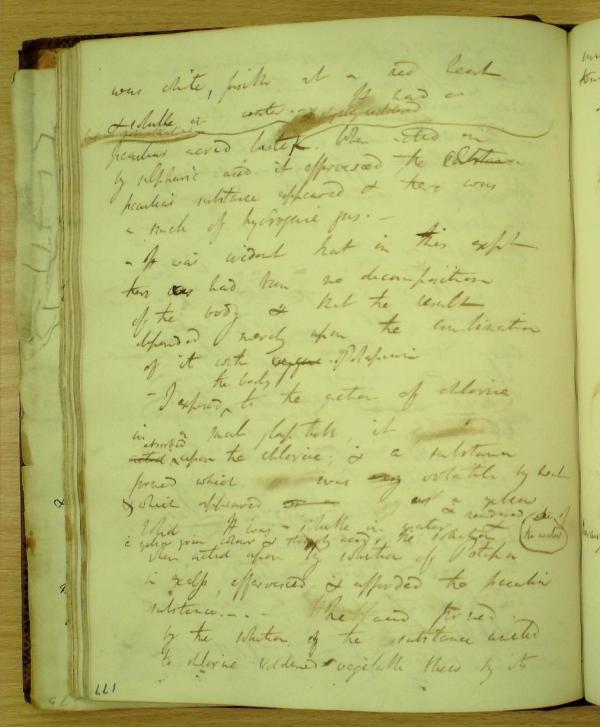 was white, fusible at a red heat
& soluble in water. It had a
peculiar acrid taste. When acted on
by sulphuric acid it effervesced the
peculiar substance appeared & there was
a smell of hydrogenic gas. —
- It was evident that in this expt
there had been no decomposition
of the body & that the result
depended merely upon the combination
of it with Potassium
the body
- I exposed to the action of chlorine
in a small glass tube, it
absorbed
acted upon the chlorine; & a substance
formed which was volatile by heat
& which appeared a yellow
Solid It was soluble in water & rendered
yellow green colour & strongly acid, the solution
the water
when acted upon by solution of Potassa
in excess, effervesced & afforded the peculiar
substance. — - The acid formed
by the solution of the substance united
to chlorine reddened vegetable blues by its
177